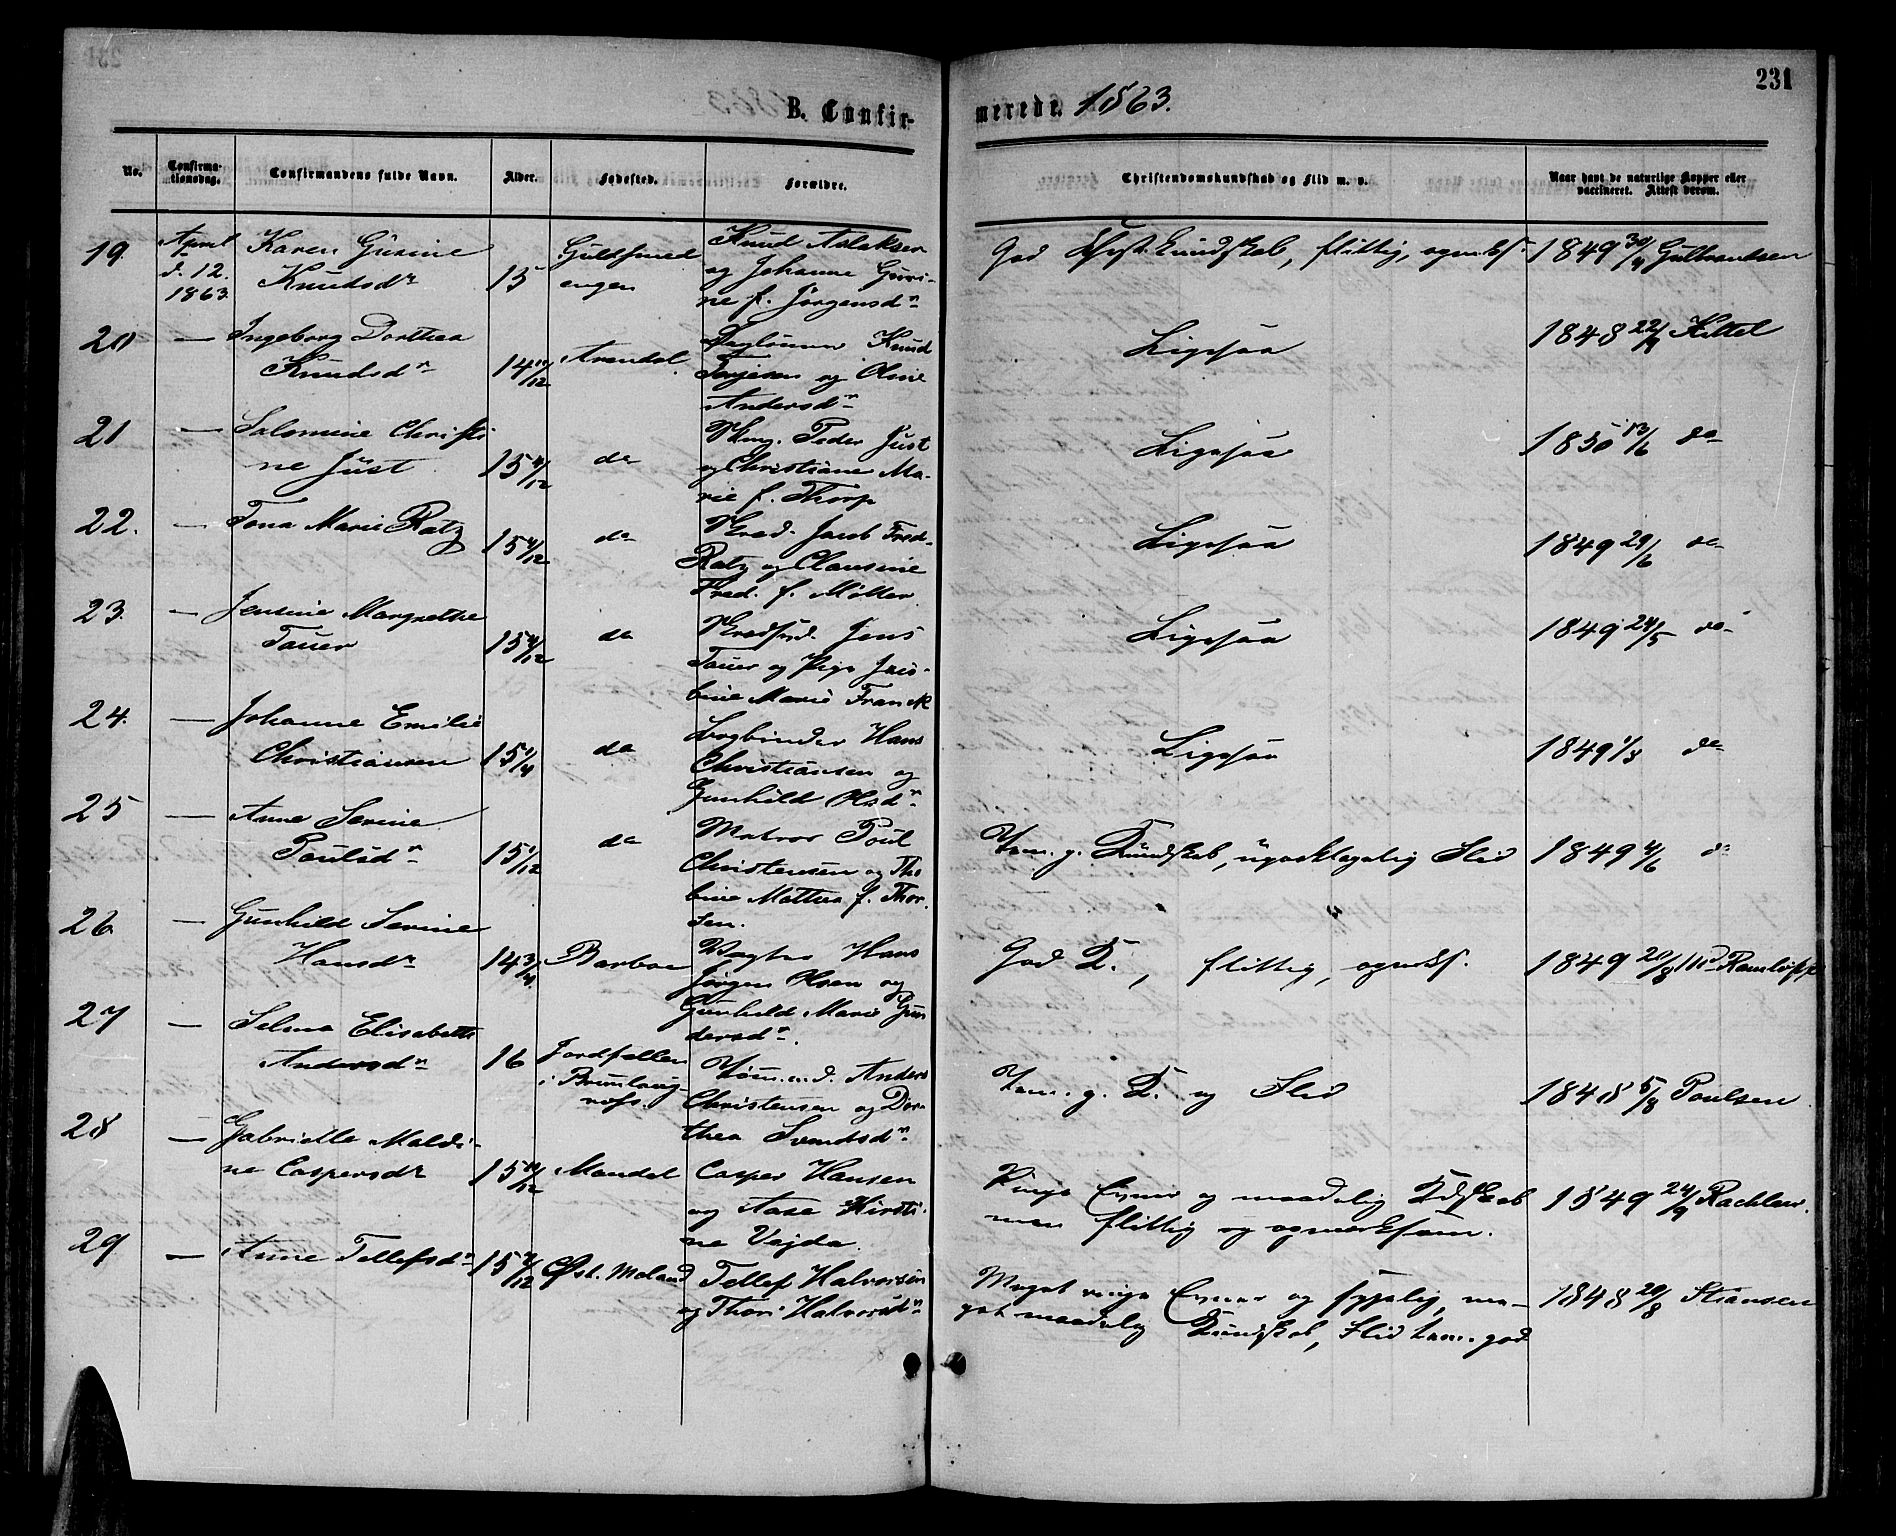 231
B. Confirmerede. 1863.
No. Confirmationsdag. Confirmandens fulde Navn. Alder. Fødested. Forældre. Christendomskundskab og Flid m. v. Naar havt de naturlige Kopper eller vaccineret. Attest derom.
19. April d. 12. 1863. Karen Gusine Knudsdr 15 Guldsmedengen Knud Aslaksen og Johanne f. Jørgensdr God Christ. Kundskab, flittig, 1849 30/4 Gulbrandsen
20 — Ingeborg Dorthea Knudsdr 14 11/12 Arendal Knud Terjesen og Olene Andersdr Ligesaa 1848 22/9 Kittel
21 — Salomine Christine Just 15 do Peder Just og Christiane Marie f. Thorp Ligesaa 1850 13/6 do
22. — Tona Marie Ratz 15 do Jacob Fred. Ratz og Clausine Fred. f. Møller Ligesaa 1849 29/6 do
23. — Jensine Margrethe Tauer 15 do Jens Tauer og Pige Jacobine Marie Franck Ligesaa 1849 24/5 do
24. — Johanne Emilie Christiansen 15 1/4 do Bogbinder Hans Christiansen og Gunhild Olsdr Ligesaa 1849 do
25 — Anne Serine Poulsdr 15 1/12 do Matros Poul Christensen og Thobine Mathea f. Thorsen. Tem. g. Kundskab, upaaklagelig Flid 1849 do
26 — Gunhild Serine Hansdr 14 3/4 Barboe Vægter Hans Jørgen Olsen og Gunhild Marie Gundersdr. God K., flittig, opmks. 1849 20/8 Ramløff
27 — Selma Elisabeth Andersdr 16 Jordfallen i Brunlaug Tømmd. Anders Christensen og Dorthea Svendsdr Tem. g. K. og Flid 1848 5/8 Poulsen
28 — Gabrielle Maldine Caspersdr 15 10/12 Mandal Casper Hansen og Aase Kirstine Vejda. Ringe Evner og maadelig Kdskab men flittig og opmærksom. 1849 24/9 Rachlew.
29 — Anne Tellefsdr 15 Øst. Moland Tellef Halvorsen og Thori Halvorsdr Meget ringe Evner og sygelig, meget maadelig Kundskab, Flid tem. god 1848 20/8 Stiansen